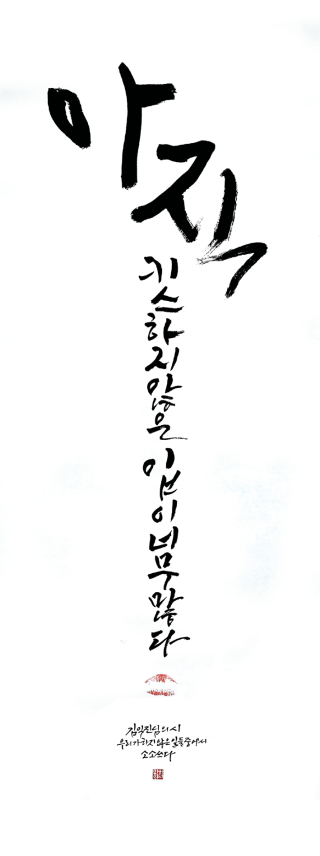 아직
키스하지 않은 입이 너무 많다
김익진님의 시
우리가 하지 않은 일들 중에서
소소쓰다